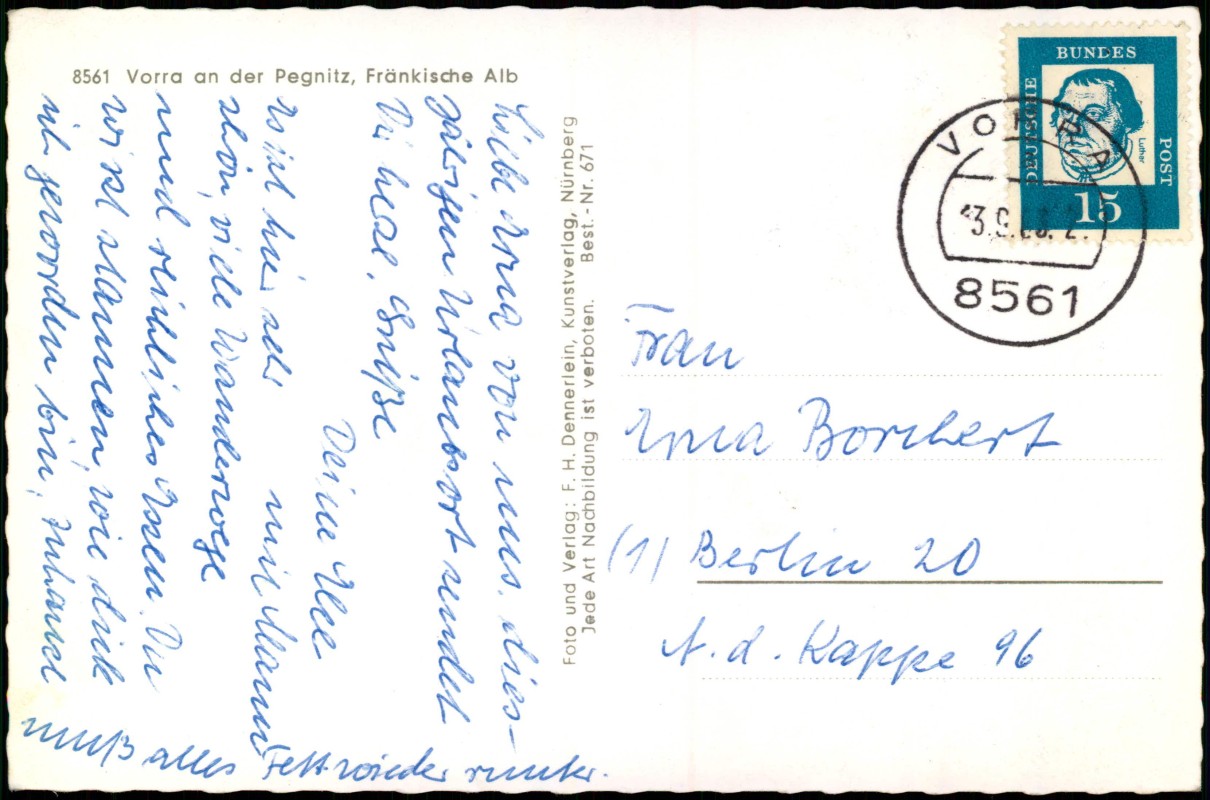 8561 Vorra an der Pegnitz, Fränkische Alb
Liebe Erna von uns. dies-
jährigen Urlaubsort sendet
Dir herzl. Grüße
Deine Else
mit Mann
Es ist hier sehr
schön, viele Wanderwege
und reichliches Essen. Du
wirst staunen, wie dick
ich geworden bin. Zuhause
muß alles Fett wieder runter.
Foto und Verlag: F. H. Dennerlein, Kunstverlag, Nürnberg
Jede Art Nachbildung ist verboten. Best.-Nr. 671
DEUTSCHE
BUNDES
POST
Luther
15
VORRA
8561
Frau
Erna Borchert
(1) Berlin 20
A. d. Kappe 96